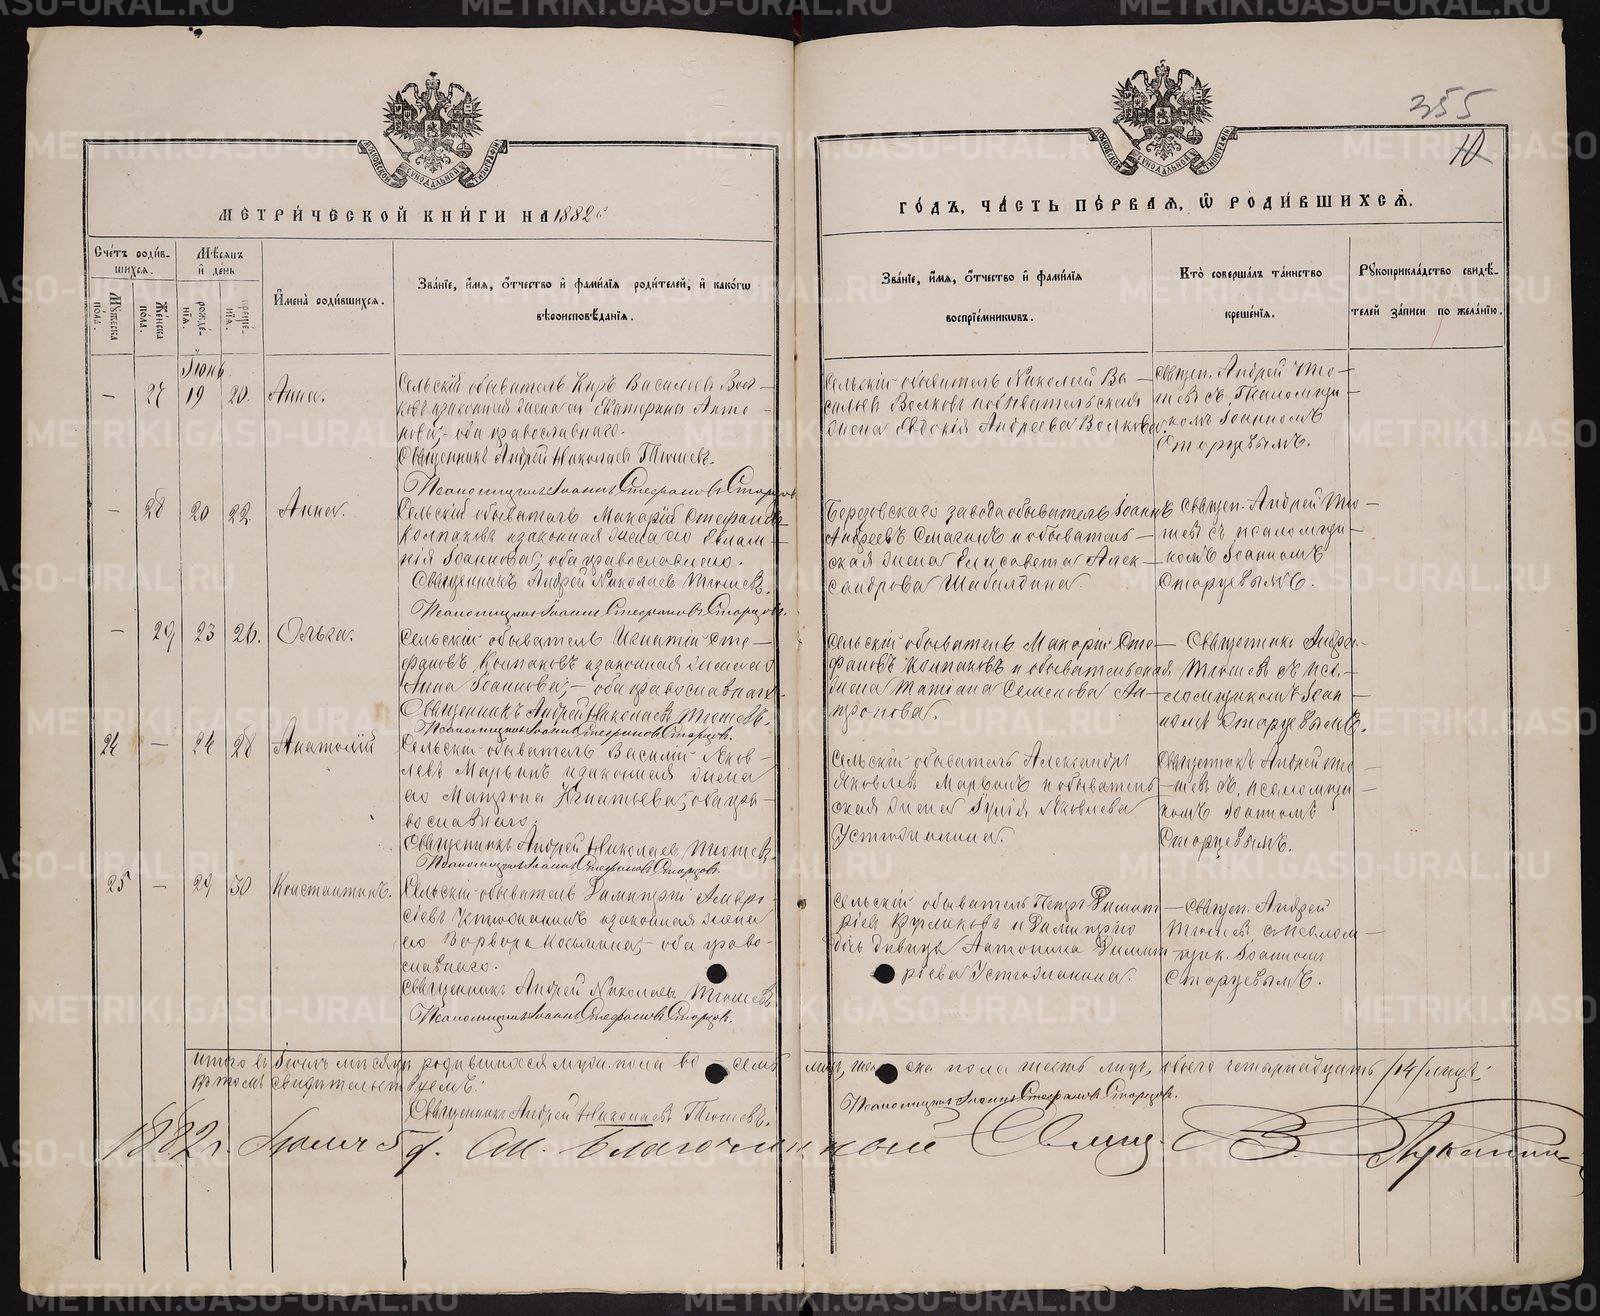 METRIKI.GASO-URAL.RU
355
10
МЕТРИ́ЧЕСКОЙ КНИ́ГИ НА 1882й
ГО́ДЪ, ЧА́СТЬ ПЕ́РВАЯ, Ѡ РОДИ́ВШИХСѦ.
Сче́тъ роди́в-
шихся.
Мѣсяцъ
и де́нь
Мꙋжеска по́ла.
Же́нска по́ла.
рожде́-
нїя.
креще́-
нїя.
И҆мена̀ роди́вшихся.
Зва́нїе, и҆́мя, ѻ҆́тчество и҆ фами́лїя роди́телей, и҆ како́гѡ
вѣроисповѣ́данїя.
Зва́нїе, и҆́мя, ѻ҆́тчество и҆ фами́лїя
воспрїе́мникѡвъ.
Кто̀ соверша́лъ та́инство
креще́нїя.
Рꙋкоприкла́дство свидѣ́-
телей за́писи по жела́нїю.
Іюнь
— 27 19 20. Анна.
Сельскій обыватель Киръ Васильевъ Вол-
ковъ и законная жена его Екатерина
оба православнаго.
Священникъ Андрей Николаевъ Тюшевъ.
Псаломщикъ Іоаннъ Стефановъ Старцовъ
Сельскій обыватель Николай Ва-
сильевъ Волковъ и обывательская
жена Евдокія Андреева Волкова.
Священ. Андрей Тю-
шевъ съ Псаломщи-
комъ Іоанномъ
Старцевымъ.
— 28 20 22. Анна.
Сельскій обыватель Макарій Стефановъ
Колпаковъ и законная жена его Евлам-
пія Іоаннова; оба православнаго.
Священникъ Андрей Николаевъ Тюшевъ.
Псаломщикъ Іоаннъ Стефановъ Старцовъ.
Березовскаго завода обыватель Іоаннъ
Андреевъ Смагинъ и обыватель-
ская жена Елисавета Алек-
сандрова Шабалдина.
Священ. Андрей Тю-
шевъ съ псаломщи-
комъ Іоанномъ
Старцевымъ.
— 29 23 26. Ольга.
Сельскій обыватель Игнатій Сте-
фановъ Колпаковъ и законная жена его
Анна Іоаннова; — оба православнаго.
Священникъ Андрей Николаевъ Тюшевъ.
Псаломщикъ Іоаннъ Стефановъ Старцовъ.
Сельскій обыватель Макарій Сте-
фановъ Колпаковъ и обывательская
жена Татіана Семенова Ан-
тропова.
Священникъ Андрей
Тюшевъ съ пса-
ломщикомъ Іоан-
номъ Старцевымъ.
24 — 24 28 Анатолій
Сельскій обыватель Василій Яков-
левъ Марьинъ и законная жена
его Матрона Игнатьева; оба пра-
вославнаго.
Священникъ Андрей Николаевъ Тюшевъ.
Псаломщикъ Іоаннъ Стефановъ Старцовъ.
Сельскій обыватель Александръ
Яковлевъ Марьинъ и обыватель-
ская жена Іулія Яковлева
Устюжанина.
Священникъ Андрей Тю-
шевъ съ псаломщи-
комъ Іоанномъ
Старцевымъ.
25 — 29 30 Константинъ.
Сельскій обыватель Димитрій Амвро-
сіевъ Устюжанинъ и законная жена
его Варвара Косьмина; — оба право-
славнаго.
Священникъ Андрей Николаевъ Тюшевъ
Псаломщикъ Іоаннъ Стефановъ Старцовъ.
Сельскій обыватель Петръ Димит-
ріевъ и Димитрія
дочь Дѣвица Антонина Димит-
ріева Устюжанина.
Священ. Андрей
Тюшевъ съ псалом-
щик. Іоанномъ
Старцевымъ.
Итого въ Іюнѣ мѣсяцѣ родившихся муж. пола во-семь лицъ, женска пола шесть лицъ, обоего четырнадцать /14/ лицъ;
въ томъ свидѣтельствуемъ:
Священникъ Андрей Николаевъ Тюшевъ.
Псаломщикъ Іоаннъ Стефановъ Старцовъ.
1882 г. Іюля 5 д. Благочинный Свящ.